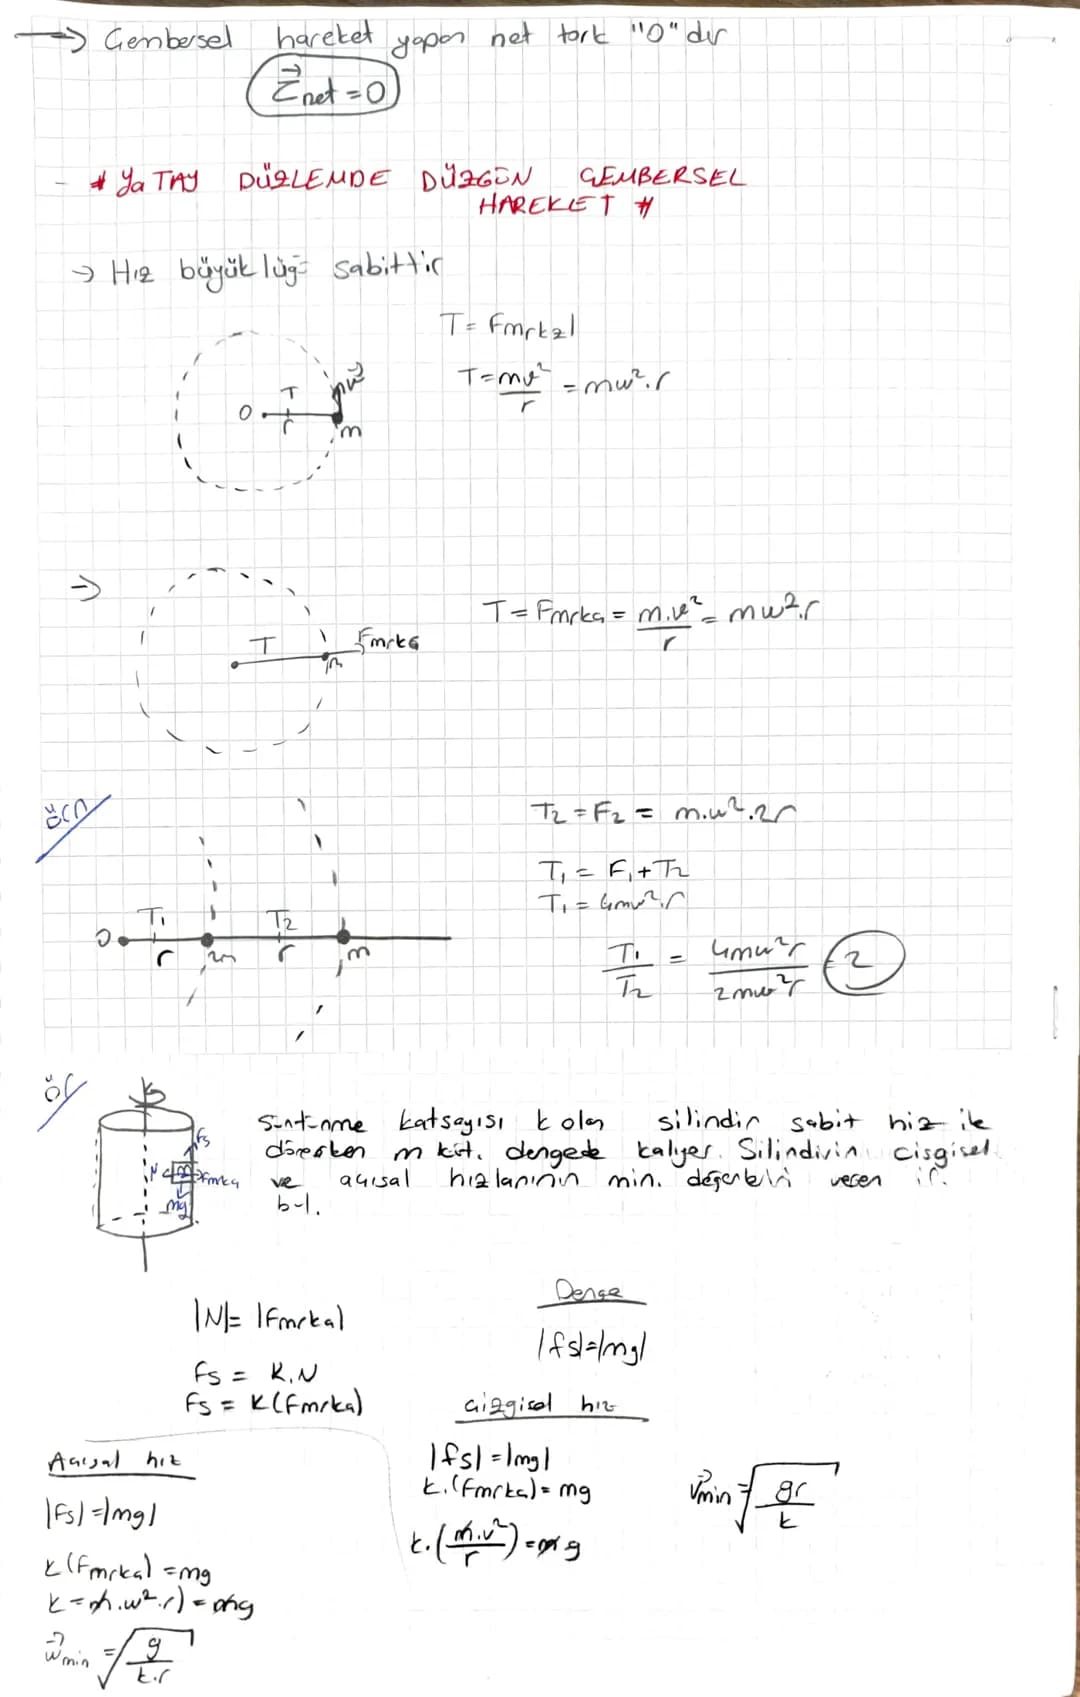 → Çembersel hareket yapan net tork "0" dır
→Στ net = 0
* YATAY DÜZLEMDE DÜZGÜN ÇEMBERSEL
HAREKET #
→ Hız büyüklüğü sabittir
T = Fmrkzl
T = mv²/r = mw².r
O T r v m
→
T = Fmrkç = m.v²/r = mw².r
T m Fmrkç
örn
T2 = F2 = m.w².2r
T1 = F1 + T2
T1 = 4mw².r
O T1 r 2m T2 r m
T1/T2 = 4mw²r/2mw²r = 2
ör
Sürtünme katsayısı k olan silindir sabit hız ile
dönerken m küt. dengede kalıyor. Silindirin çizgisel
ve açısal hızlarının min. değerlerini veren if.
bul.
fs N m Fmrkç mg
|N| = |Fmrkç|
fs = k.N
fs = k(Fmrkç)
Denge
|fs| = |mg|
Çizgisel hız
|fs| = |mg|
k.(Fmrkç) = mg
k.(m.v²/r) = mg
vmin = √gr/k
Açısal hız
|fs| = |mg|
k(Fmrkç) = mg
k = m.w².r) = mg
wmin = √g/k.r